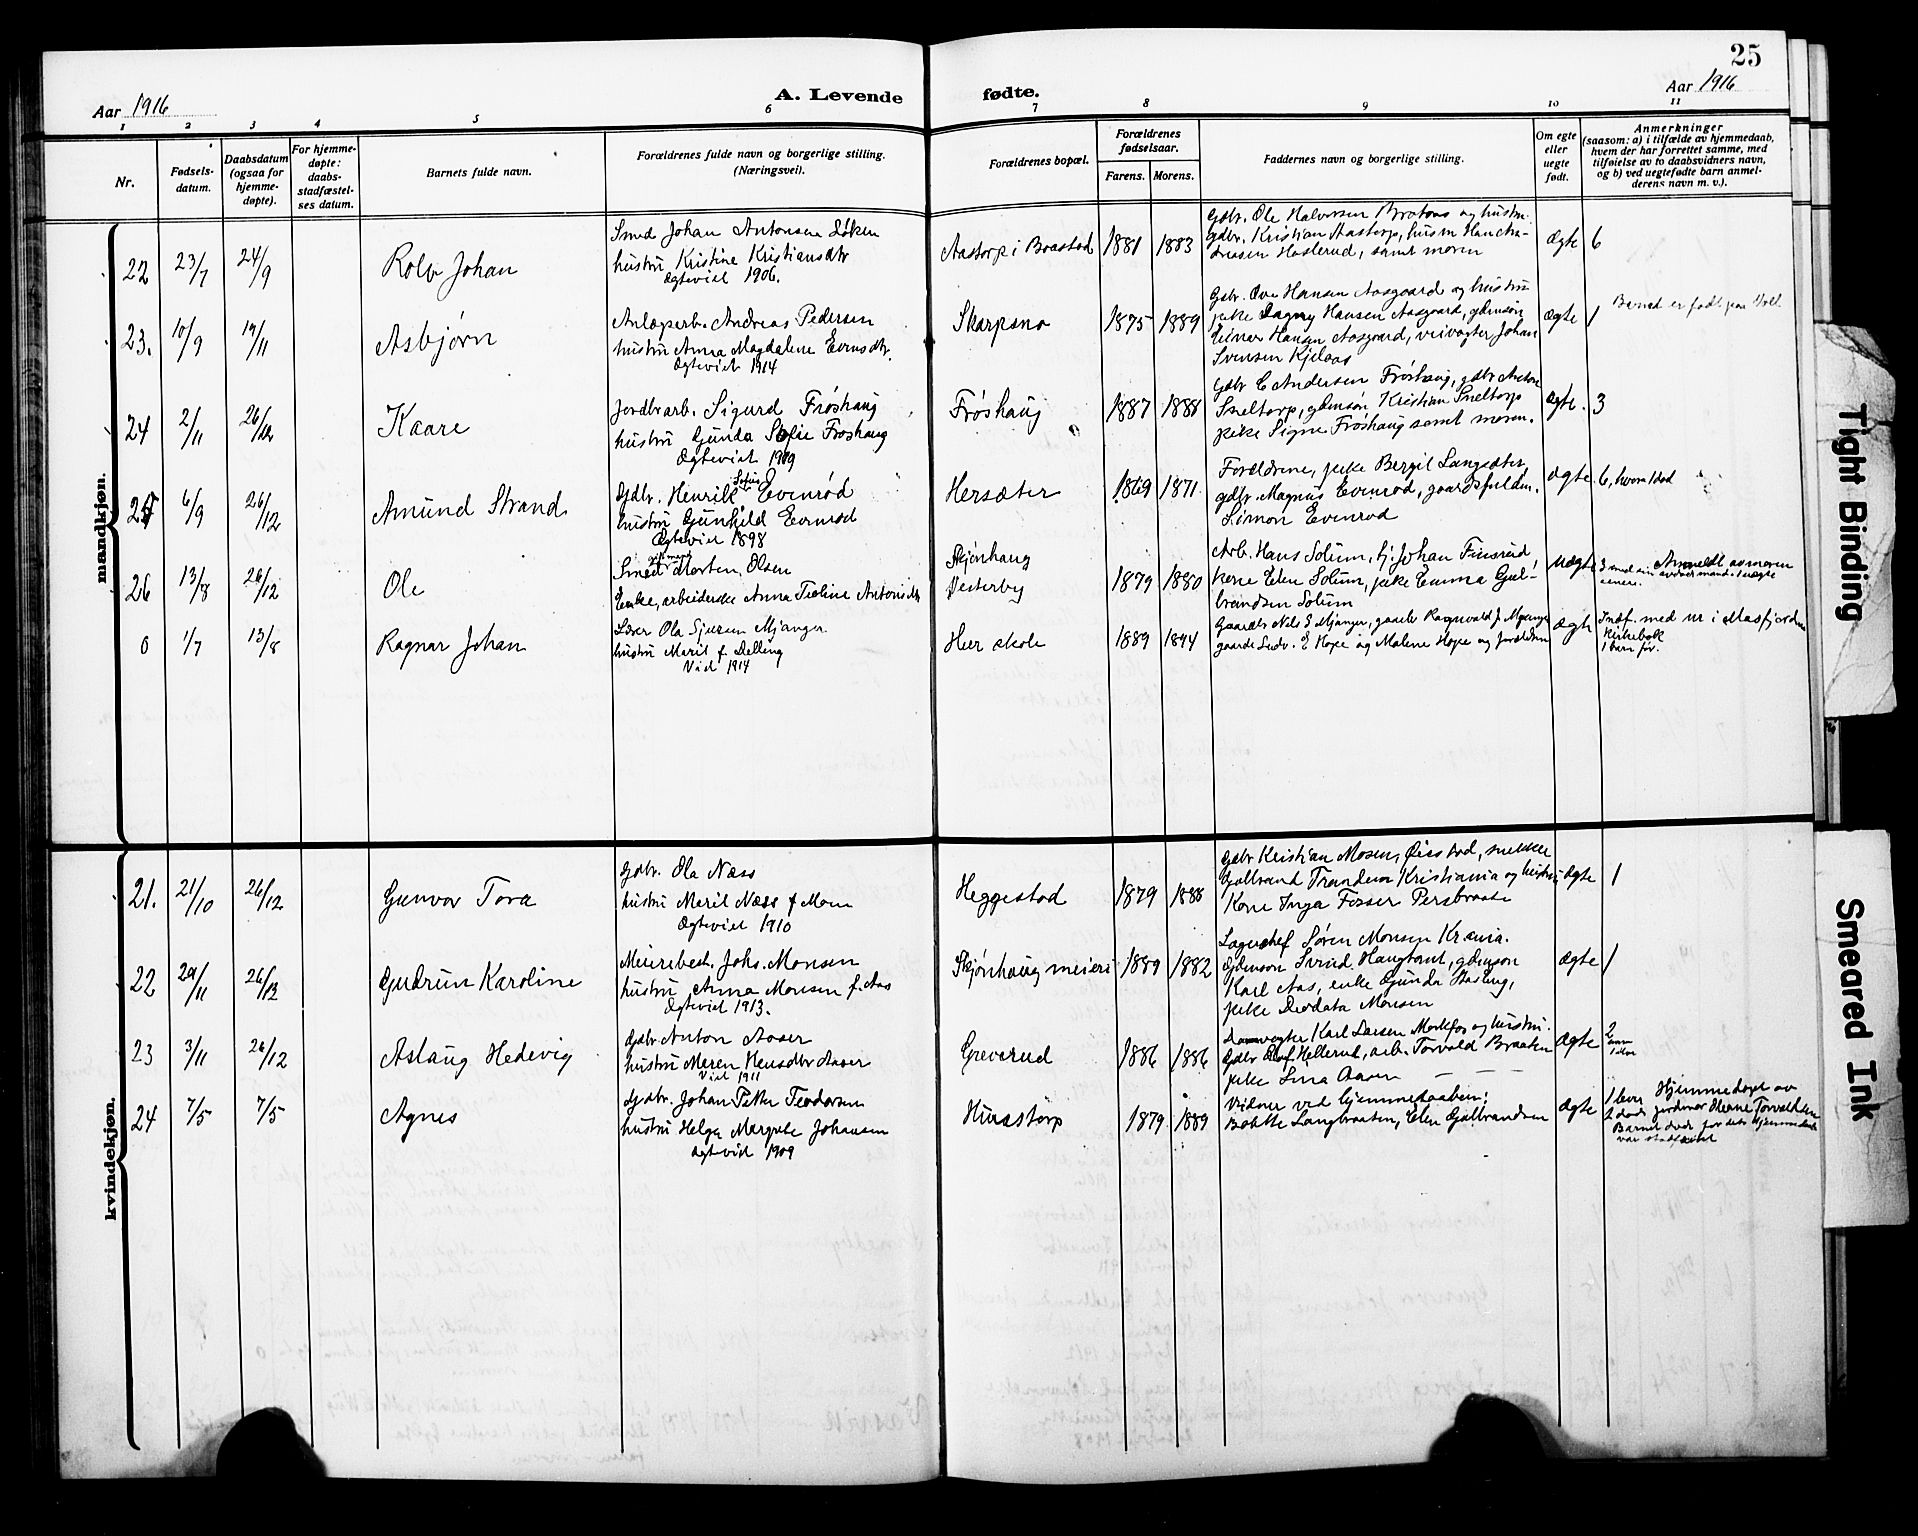 25
Aar 1916
A. Levende
fødte.
Aar 1916
1 2 3 4 5 6 7 8 9 10 11
Nr.
Fødsels-
datum.
Daabsdatum
(ogsaa for
hjemme-
døpte).
For hjemme-
døpte:
daabs-
stadfæstel-
ses datum.
Barnets fulde navn.
Forældrenes fulde navn og borgerlige stilling.
(Næringsvei).
Forældrenes bopæl.
Forældrenes
fødselsaar.
Farens. Morens.
Faddernes navn og borgerlige stilling.
Om egte
eller
uegte
født.
Anmerkninger
(saasom: a) i tilfælde av hjemmedaab,
hvem der har forrettet samme, med
tilføielse av to daabsvidners navn,
og b) ved uegtefødte barn anmel-
derens navn m. v.).
mandkjøn.
22 23/7 24/9 Rolv Johan
Smed Johan Antonsen Løken
hustru Kristine Kristiansdtr
Ægteviet 1906.
Aastorp i Braastad 1881 1883
Gdbr. Ole Halvorsen Braatens og hustru
gdbr. Kristian Aastorp, husm
Haslerud, samt moren
ægte 6
23. 10/9 19/11 Asbjørn
Anlægsarb. Andreas Pedersen
hustru Anna Magdalene Evensdtr.
Ægteviet 1914
Skarpsno 1875 1889
Gdbr. Ove Hansen Aasgaard og hustru
pike Dagny Hansen Aasgaard, gdmsøn
Einar Hansen Aasgaard, veivogter Johan
Svensen Kjelaas
ægte 1
Barnet er født paa
24 2/11 26/12 Kaare
Jordbrarb. Sigurd Frøshaug
hustru Gunda Sofie Frøshaug
Ægteviet 1909
Frøshaug 1887 1888
Gdbr C Andersen Frøshaug, gdbr Anton
Sneltorp, gdmsøn Kristian Sneltorp
pike Signe Frøshaug samt moren.
ægte. 3
25 6/9 26/12 Amund Strand
Gdbr. Henrik Evenrød
hustru Gunhild Evenrød
Ægteviet 1898
Hersæter 1869 1871
Forældrene, pike Bergit Langsæter
gdbr. Magnus Evenrød, gaardsfuldm.
Simon Evenrød
ægte 6, hvorav 1 død
26 13/8 26/12 Ole
gift mand
Smed Morten Olsen
Enke, arbeiderske Anna Teoline Antonsdtr
Skjønhaug
Vesterby 1879 1880
Arb. Hans Solum, hj. Johan Finsrud
kone Elen Solum, pike Emma Gul-
brandsen Solum
uægte Anmeldt av moren
0 1/7 13/8 Ragnar Johan
Lærer Ola Sjursen Mjanger
hustru Marit f. Delling
Viet 1914
Heer skole 1889 1894
Gaardbr Nils S Mjanger, gaardb Ragnvald J. Mjanger
gaardb Ludv. E Hope og Malene Hope og forældrene
ægte Indf. med nr i Masfjorden
kirkebok
1 barn før.
kvindekjøn.
21. 21/10 26/12 Gunvor Tora
Gdbr. Ola Næss
hustru Marit Næss f Moen
Ægteviet 1910
Heggestad 1879 1888
Gdbr Kristian Mosen, Øiestad, snekker
Gulbrand Trandem Kristiania og hustru
Kone Inga Fosser Persbraate
ægte 1
22 29/11 26/12 Gudrun Karoline
Meieribest. Johs. Monsen
hustru Anna Monsen f. Aas
Ægteviet 1913.
Skjønhaug meieri 1889 1882
Lagerchef Søren Monsen Kr.ania.
Gdmsøn Svend Haugtomt, gdmsøn
Karl Aas, enke Gunda Hasling,
pike Deodata Monsen
ægte 1
23 3/11 26/12 Aslaug Hedevig
Gdbr Anton Aaser
hustru Maren Hansdtr Aaser
Viet 1911
Greverud 1886 1886
Damvogter Karl Larsen Mørkfos og hustru.
Gdbr Olaf Hellerud, arb. Torvald Braaten
pike Lina Aaser
ægte 2
24 7/5 7/5 Agnes
Gdbr. Johan Petter Teodorsen
hustru Helga Margrete Johansen
ægteviet 1909
Huaastorp 1879 1889
Vidner ved hjemmedaaben:
Bolette Langbraaten, Elen Gulbrandsen
ægte 1 lever
Hjemmedøpt av
jordmor Merne Torvaldsen
Barnet døde før dets hjemmedaab
var stadfæstet
Tight Binding
Smeared Ink